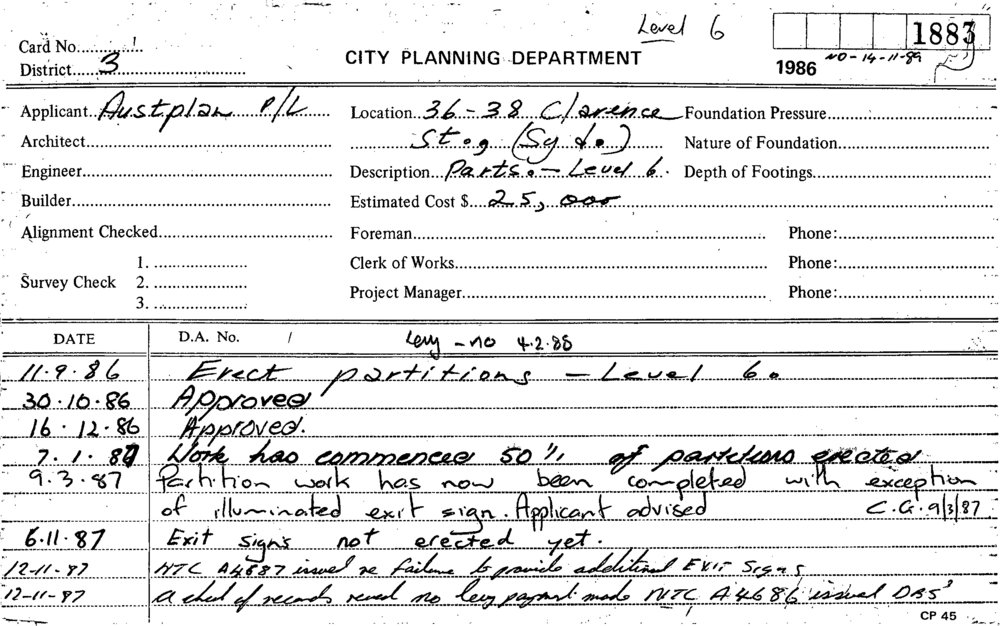 Level 6
1883
Card No. 1.
CITY PLANNING DEPARTMENT
1986 NO-14-11-89
District 3
Applicant Austplan P/L Location 36-38 Clarence Foundation Pressure
Architect St., (Syd.) Nature of Foundation
Engineer Description Parts. - Level 6. Depth of Footings
Builder Estimated Cost $ 25,000
Alignment Checked Foreman Phone:
Survey Check 1. 2. 3.
Clerk of Works Phone:
Project Manager Phone:
DATE D.A. No. / Levy - no 4.2.88
11.9.86 Erect partitions - Level 6.
30.10.86 Approved
16.12.86 Approved.
7.1.87 Work has commenced 50% of partitions erected
9.3.87 Partition work has now been completed with exception
of illuminated exit sign. Applicant advised C.G. 9/3/87
6.11.87 Exit signs not erected yet.
12-11-87 NTC A4687 issued re failure to provide additional Exit Signs
12-11-87 A check of records reveal no levy payment made NTC A4686 issued
CP 45